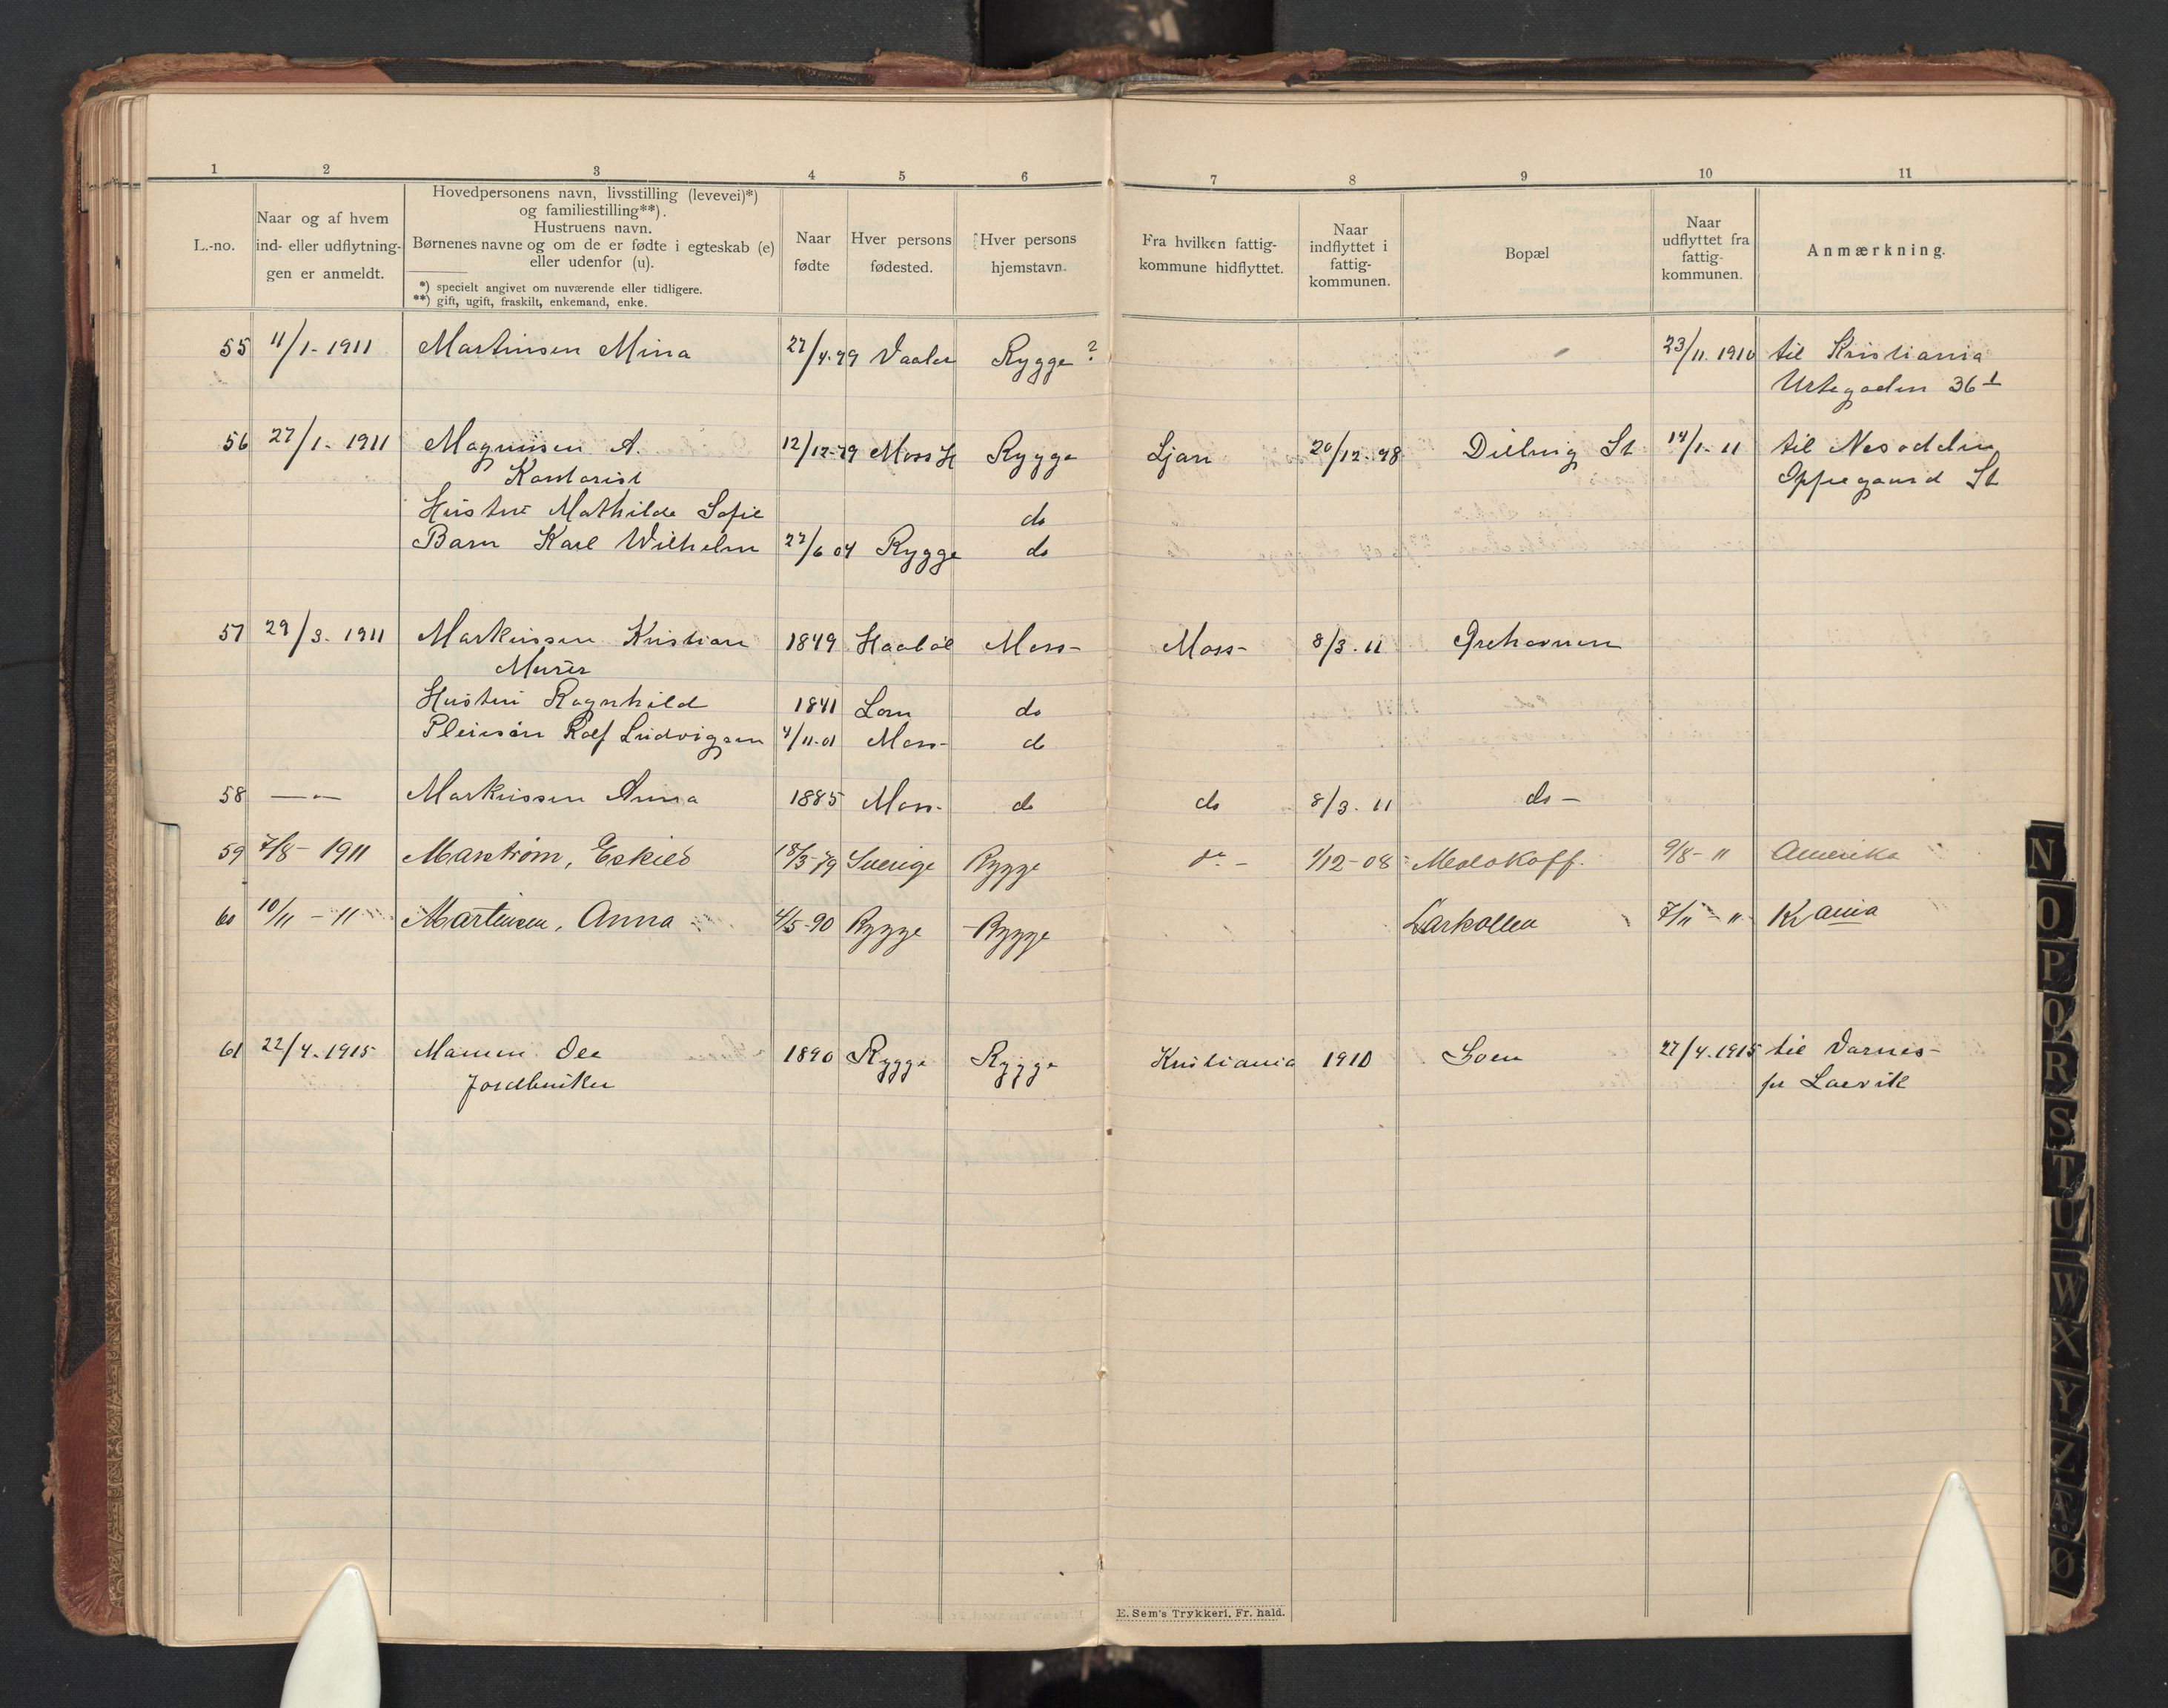 1 2 3 4 5 6 7 8 9 10 11
L.-no.
Naar og af hvem
ind- eller udflytnin-
gen er anmeldt.
Hovedpersonens navn, livsstilling (levevei)*)
og familiestilling**).
Hustruens navn.
Børnenes navne og om de er fødte i egteskab (e)
eller udenfor (u).
*) specielt angivet om nuværende eller tidligere.
**) gift, ugift, fraskilt, enkemand, enke.
Naar
fødte
Hver persons
fødested.
Hver persons
hjemstavn.
Fra hvilken fattig-
kommune hidflyttet.
Naar
indflyttet i
fattig-
kommunen.
Bopæl
Naar
udflyttet fra
fattig-
kommunen.
Anmærkning.
55 11/1-1911 Martinsen Mina 27/4.79 Vaaler Rygge? 23/11.1910 til Kristiania
Urtegaden 36 I
56 27/1-1911 Magnusen A. 12/12-79 Moss Rygge Ljan 20/12.98 Dilling St 14/1-11 til Nesodden
Kontorist Oppegaard St
Hustru Mathilde Sofie do
Barn Karl Wilhelm 27/6 04 Rygge do
57 29/3-1911 Markussen Kristian 1849 Haabøl Moss- Moss- 8/3.11
Murer
Hustru Ragnhild 1841 Lom do
Pleiesøn Rolf Ludvigsen 4/11-01 Moss- do
58 — " — Markussen Anna 1885 Moss- do do 8/3.11 do-
59 7/8-1911 Marstrøm, Eskild 18/3-79 Sverige Rygge do- 1/12-08 Melakoff. 9/8-11 Amerika
60 10/11-11 Martinsen, Anna 4/5-90 Rygge Rygge Larkollen 7/11-" Kr ania
61 22/4.1915 Mamen Ole 1890 Rygge Rygge Kristiania 1910 Loen 27/4.1915 til Varnes-
Jordbruker pr Larvik
E. Sem's Trykkeri, Fr. hald.
N
O
P
Q
R
S
T
U
W
X
Y
Z
Æ
Ø